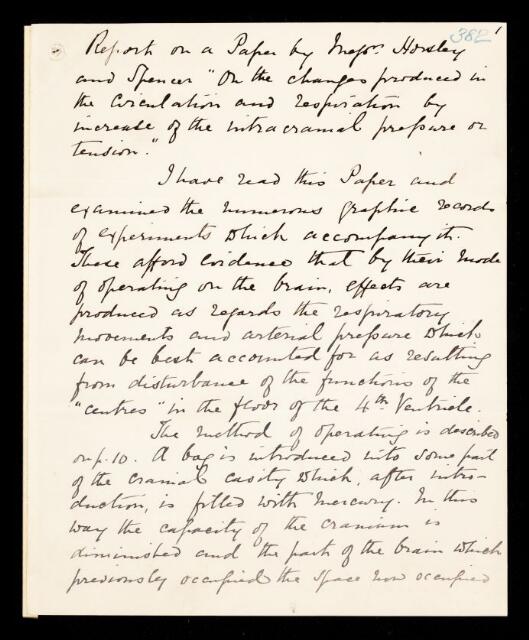 382
1
Report on a Paper by Messrs. Horsley
and Spencer "On the changes produced in
the Circulation and respiration by
increase of the intracranial pressure or
tension."
I have read this Paper and
examined the numerous graphic records
of experiments which accompany it.
These afford evidence that by their mode
of operating on the brain, effects are
produced as regards the respiratory
movements and arterial pressure which
can be best accounted for as resulting
from disturbance of the functions of the
"centres" in the floor of the 4th Ventricle.
The method of operating is described
on p. 10. A bag is introduced into some part
of the cranial cavity which, after intro-
duction, is filled with mercury. In this
way the capacity of the cranium is
diminished and the part of the brain which
previously occupied the space now occupied